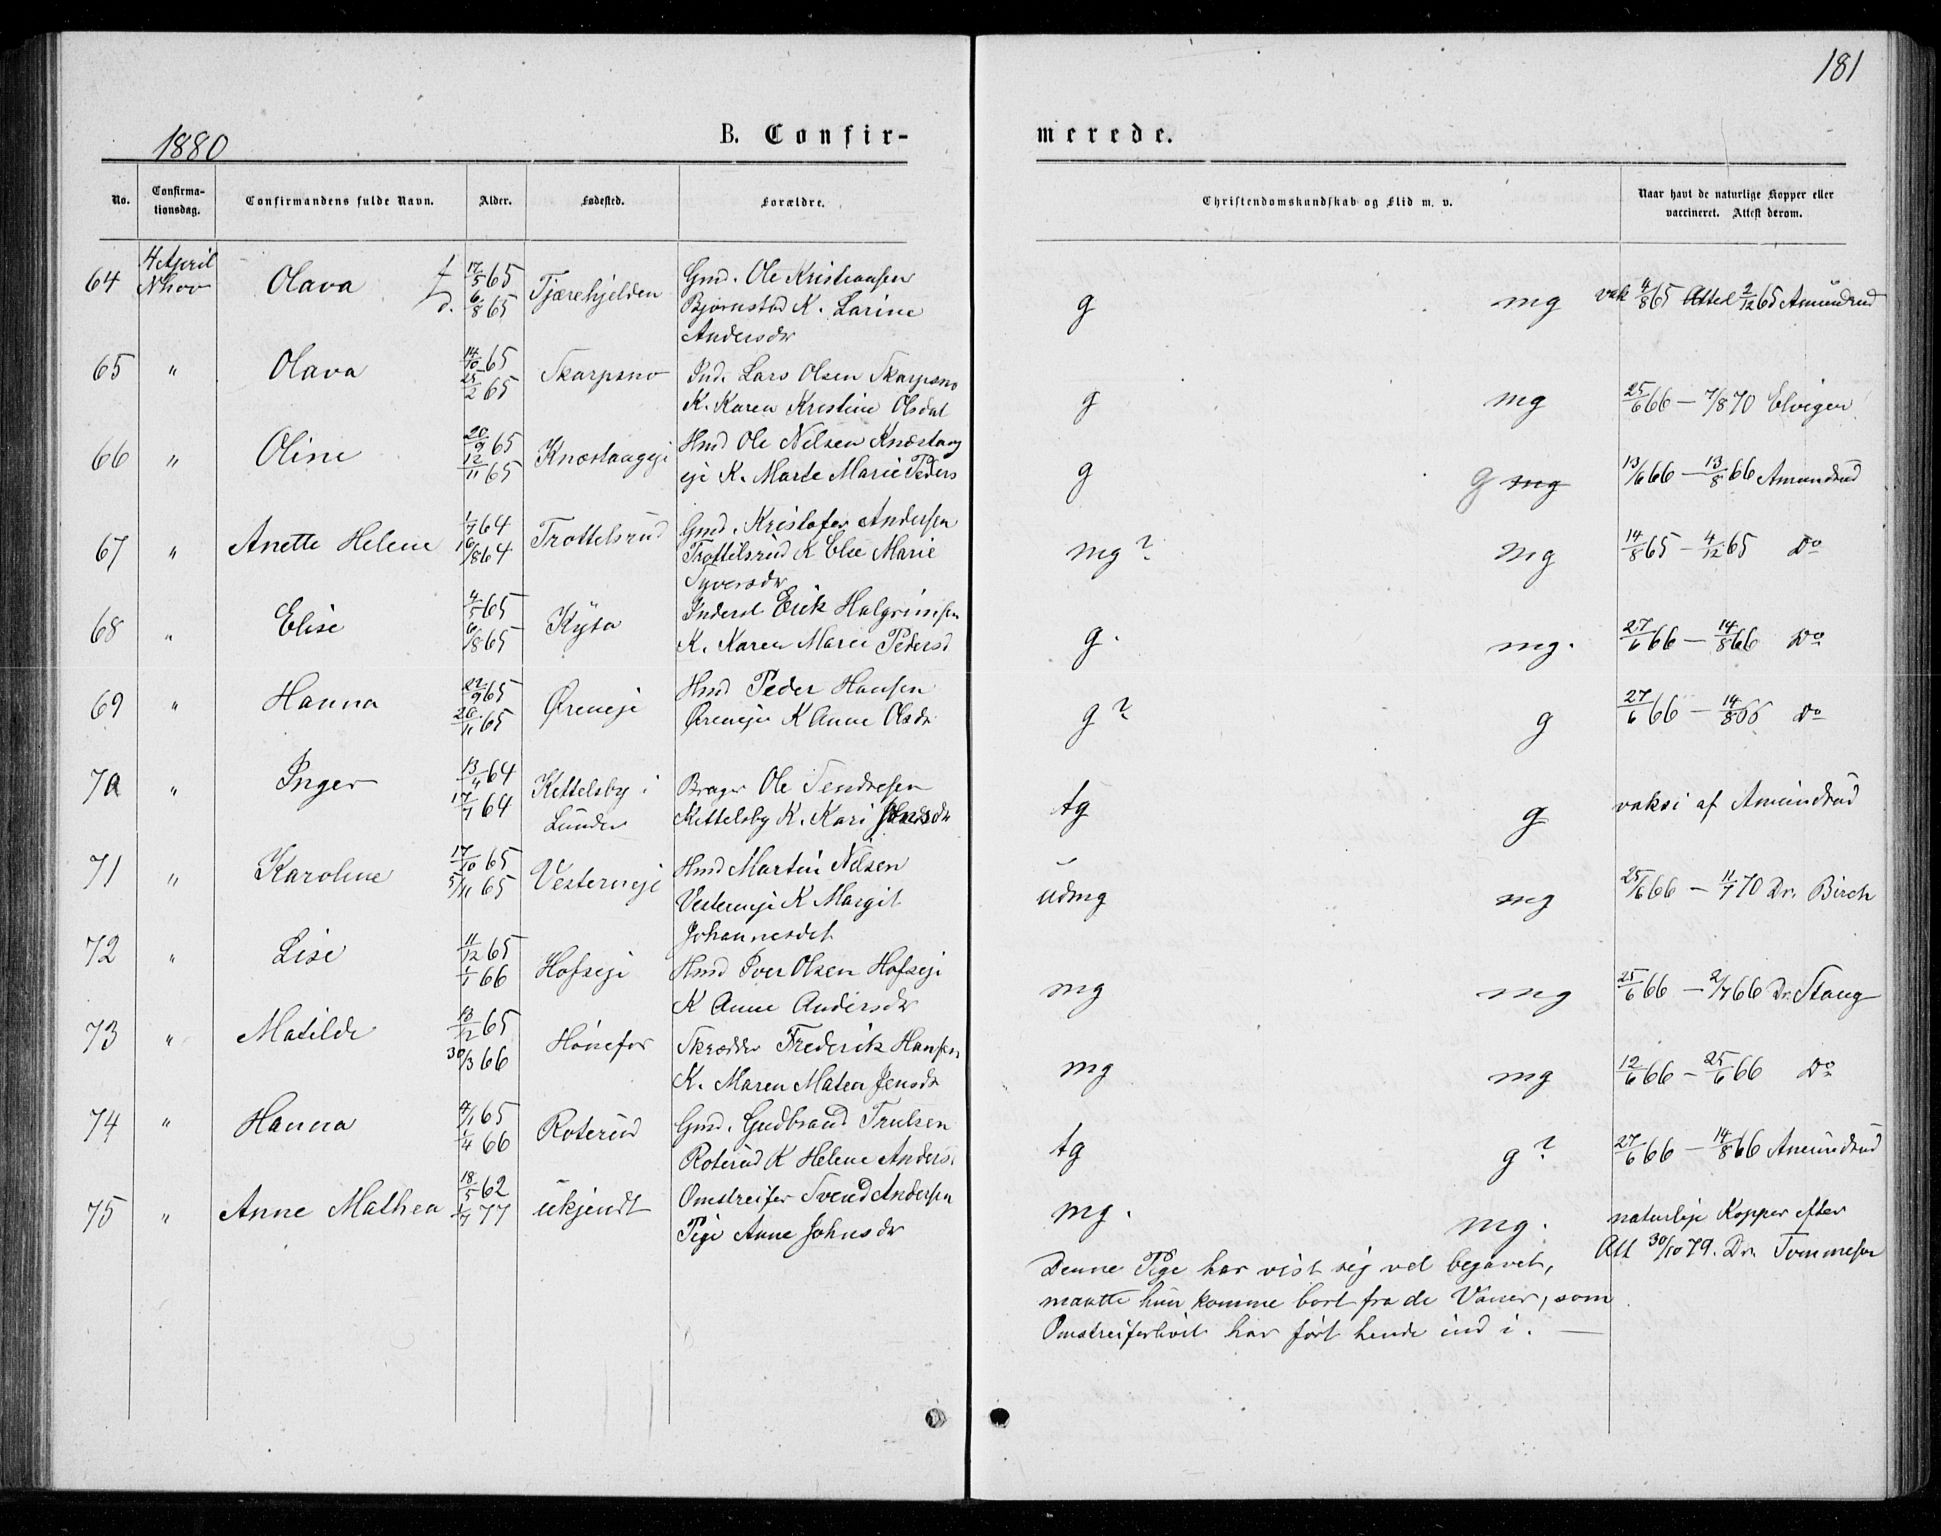 181
1880
B. Confir-
merede.
No.
Confirma-
tionsdag.
Confirmandens fulde Navn.
Alder.
Fødested.
Forældre.
Christendomskundskab og Flid m. v.
Naar havt de naturlige Kopper eller
vaccineret. Attest derom.
4 April
64 Nhov Olava f 17/5 65 Tjærehjelden Gmd. Ole Kristiansen
d. 6/8 65 Bjørnstad K. Larine
Andersdr
g mg vak 4/8 65 Attest 2/12 65 Amundrud
65 " Olava 14/10 65 Skarpsno Ind. Lars Olsen Skarpsno
25/2 65 K. Karen Kristine Olsdat
g mg 25/6 66 – 7/8 70 Elvigen
66 " Oline 20/9 65 Knæstangeji Hmd Ole Nilsen Knæstang
12/11 65 eje K. Marte Marie Peders
g g mg 13/6 66 – 13/8 66 Amundrud
67 " Anette Helene 1/7 64 Trottelsrud Gmd. Kristofer Andersen
16/8 64 Trottelsrud K Else Marie
Syversdr
mg? mg 14/8 65 – 4/12 65 Do
68 " Elise 4/5 65 Kysa Inderst Erik Halgrimsen
6/8 65 K. Karen Marie Pedersd
g. mg. 27/6 66 – 14/8 66 Do
69 " Hanna 22/9 65 Øreneje Hmd Peder Hansen
26/11 65 Øreneje K Anne Olsdr
g? g 27/6 66 – 14/8 66 Do
70 " Inger 13/4 64 Kittelsby i Bruger Ole Sendresen
17/7 64 Lunder Kittelsby K. Kari
tg g vaksi af Amundrud
71 " Karoline 17/10 65 Vesterneje Hmd Martin Nilsen
5/11 65 Vesterneje K Margit
Johannesdat
udmg mg 25/6 66 – 11/7 70 Dr. Birch
72 " Lise 11/12 65 Hofseje Hmd Iver Olsen Hofseje
1/1 66 K Anne Andersdr
mg mg 25/6 66 – 2/7 66 Dr. Stang
73 " Matilde 18/12 65 Hønefos Skrædder Frederik Hansen
30/3 66 K. Maren Maten Jensdr
mg mg 12/6 66 – 25/6 66 Do
74 " Hanna 4/11 65 Roterud Gmd. Gudbrand Trulsen
1/4 66 Roterud K Helene Anders.
tg g? 27/6 66 – 14/8 66 Amundrud
75 " Anne Mathea 18/5 62 ukjendt Omstreifer Svend Andersen
1/7 77 Pige Anne Johnsdr
mg. mg. naturlige Kopper efter
Att 30/10 79. Dr. Tommesen
Denne Pige har vist sig vel begavet,
maatte hun komme bort fra de Vaner, som
Omstreiferlivet har ført hende ind i. —